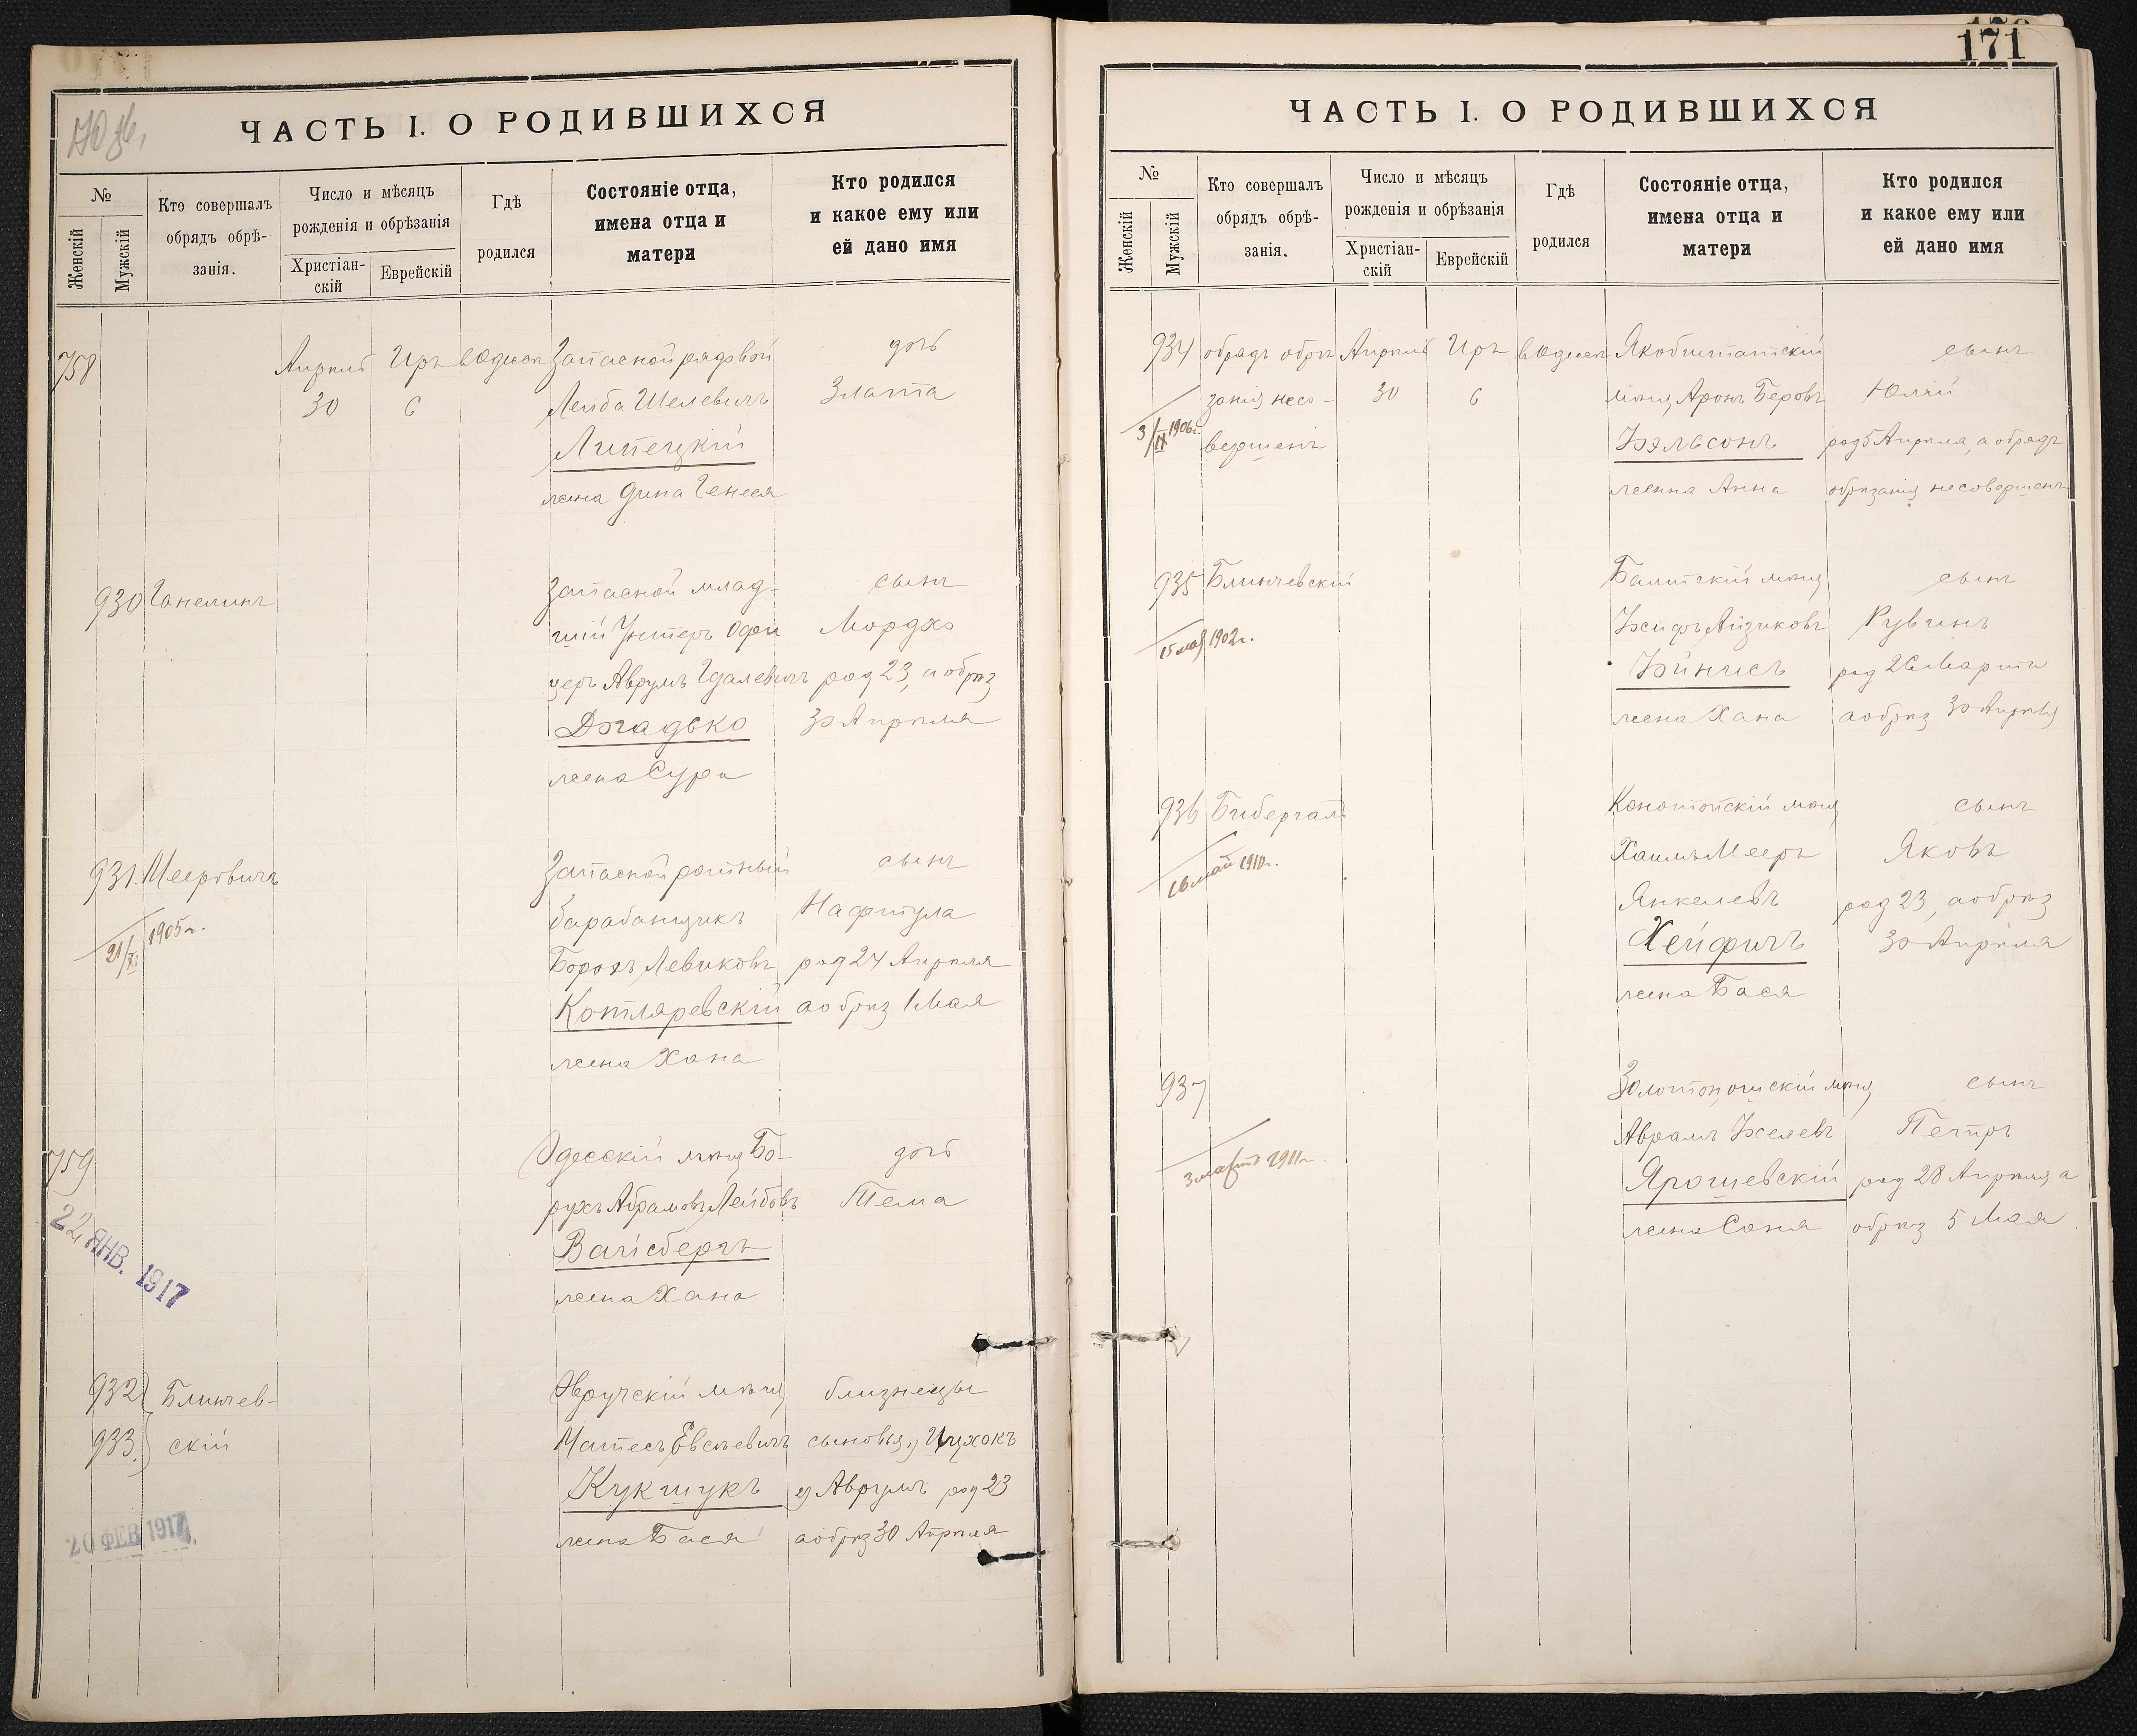 170 об.
ЧАСТЬ I. О РОДИВШИХСЯ
№
Женскій
Мужскій
Кто совершалъ
обрядъ обрѣ-
занія.
Число и мѣсяцъ
рожденія и обрѣзанія
Христіан-
скій
Еврейскій
Гдѣ
родился
Состояніе отца,
имена отца и
матери
Кто родился
и какое ему или
ей дано имя
758 Апрель Иръ в Одессѣ Запасной рядовой дочь
30 6 Лейба Шелевичъ Злата
Липецкій
жена Дина Генеся
930 Ганелинъ Запасной млад- сынъ
шій Унтеръ Офи Мордхо
церъ Аврумъ Гдалевичъ род 23, а обрѣз
Дзадько 30 Апрѣля
жена Сура
931. Мееровичъ Запасной ротный сынъ
барабанщикъ Нафтула
21/XI 1905 г. Борохъ Левиковъ род 24 Апрѣля
Котляревскій а обрѣз 1 Мая
жена Хана
759 Одесскій мѣщ Бо- дочь
рухъ Абрамовъ Лейбовъ Тема
Вайсбергъ
жена Хана
22 ЯНВ. 1917
932 Блинчев- Овручскій мѣщ близнецы
933. скій Матесъ Евсѣевичъ сыновья, Ицхокъ
Кукшукъ Аврумъ род 23
жена Бася а обрѣз 30 Апрѣля
20 ФЕВ 1917
171
ЧАСТЬ I. О РОДИВШИХСЯ
№
Женскій
Мужскій
Кто совершалъ
обрядъ обрѣ-
занія.
Число и мѣсяцъ
рожденія и обрѣзанія
Христіан-
скій
Еврейскій
Гдѣ
родился
Состояніе отца,
имена отца и
матери
Кто родился
и какое ему или
ей дано имя
934 обрядъ обрѣ Апрель Иръ в Одессѣ Якобштатскій сынъ
занія несо- 30 6. мѣщ Аронъ Беровъ Юлій
3/IX 1906 г. вершенъ Нэльсонъ род 5 Апрѣля, а обрядъ
жена Анна обрѣзанія несовершенъ
935 Блинчевскій Балтскій мѣщ сынъ
15 май 1902 г. Айзиковъ Рувинъ
род 26 Марта
жена Хана а обрѣз 30 Апрѣля
936 Бибергалъ Конотопскій мѣщ сынъ
16 май 1910 г. Хаимъ Мееръ Яковъ
Янкелевъ род 23, а обрѣз
Хейфичъ 30 Апрѣля
жена Бася
937 Золотоношскій мѣщ сынъ
3 мартъ 1911 г. Аврамъ Петръ
Ярошевскій род 28 Апрѣля а
жена Соня обрѣз 5 Мая